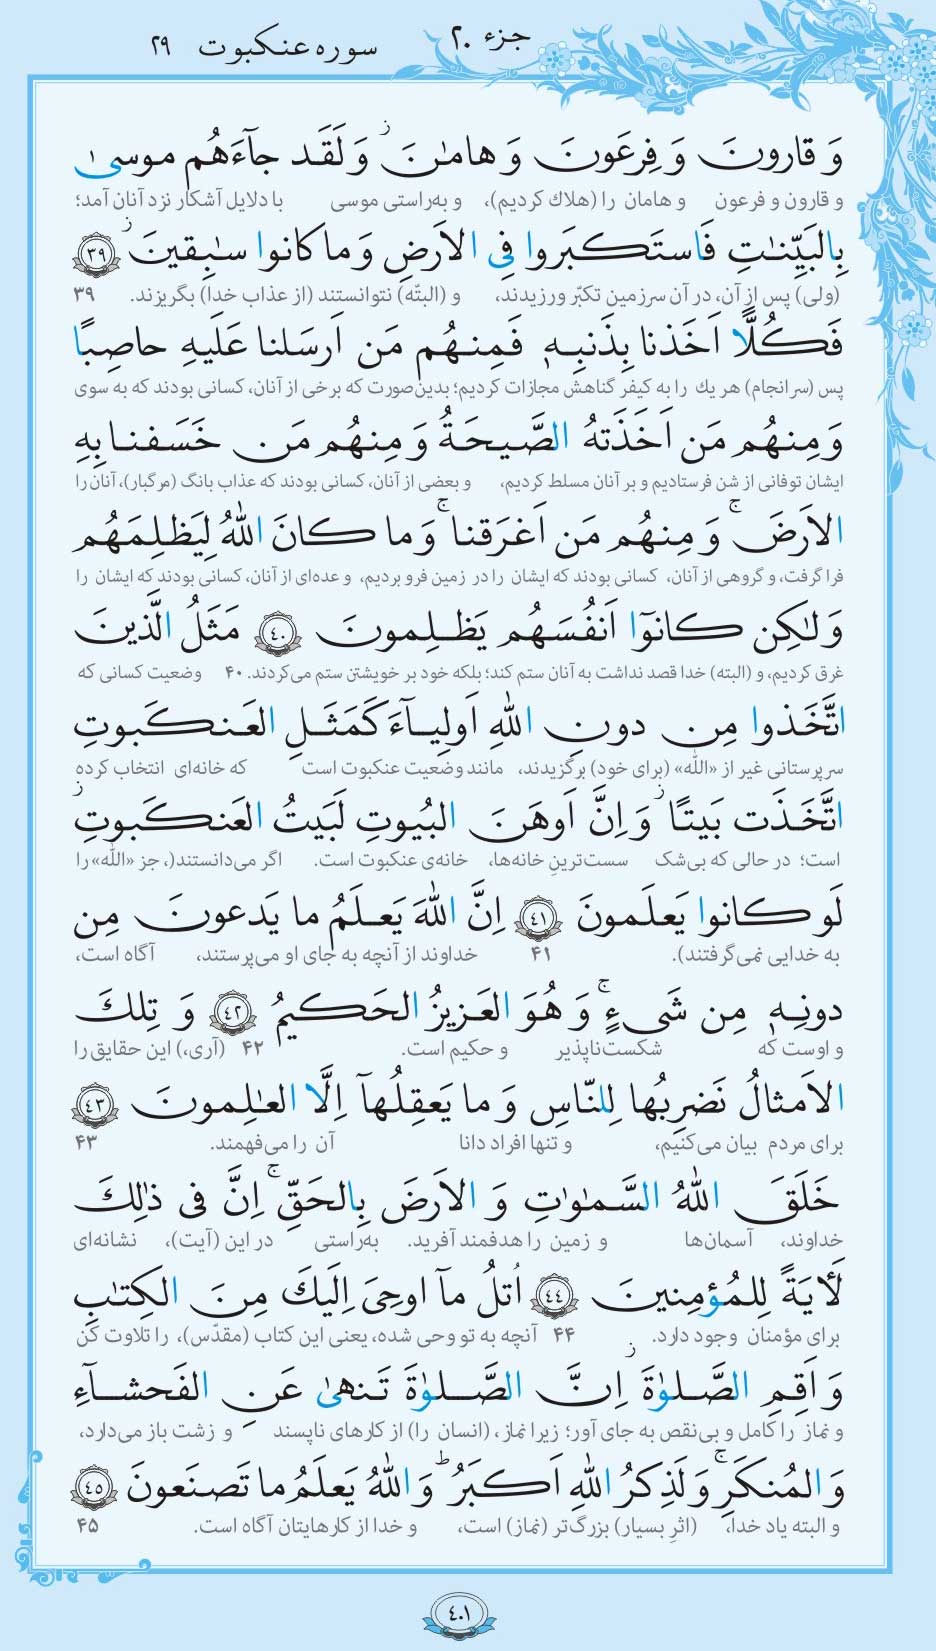 جزء ۲۰
سوره عنكبوت ۲۹
وَ قارونَ وَ فِرعَونَ وَ هامٰنَ ۖ وَ لَقَد جآءَهُم موسىٰ
و قارون و فرعون و هامان را (هلاک کردیم)، و به‌راستی موسی با دلایل آشکار نزد آنان آمد؛
بِالبَيِّنٰتِ فَاستَكبَروا فِى الاَرضِ وَ ما كانوا سٰبِقينَ ﴿٣٩﴾
(ولی) پس از آن، در آن سرزمین تکبّر ورزیدند، و (البتّه) نتوانستند (از عذاب خدا) بگریزند. ۳۹
فَكُلًّا اَخَذنا بِذَنبِهٖ فَمِنهُم مَن اَرسَلنا عَلَيهِ حاصِبًا
پس (سرانجام) هر یك را به کیفر گناهش مجازات کردیم؛ بدین‌صورت که برخی از آنان، کسانی بودند که به سوی
وَ مِنهُم مَن اَخَذَتهُ الصَّيحَةُ وَ مِنهُم مَن خَسَفنا بِهِ
ایشان توفانی از شن فرستادیم و بر آنان مسلط کردیم، و بعضی از آنان، کسانی بودند که عذاب بانگ (مرگبار)، آنان را
الاَرضَ ۚ وَ مِنهُم مَن اَغرَقنا ۚ وَ ما كانَ اللّٰهُ لِيَظلِمَهُم
فرا گرفت، و گروهی از آنان، کسانی بودند که ایشان را در زمین فرو بردیم، و عده‌ای از آنان، کسانی بودند که ایشان را
وَ لٰكِن كانوٓا اَنفُسَهُم يَظلِمونَ ﴿٤٠﴾ مَثَلُ الَّذينَ
غرق کردیم، و (البته) خدا قصد نداشت به آنان ستم کند؛ بلکه خود بر خویشتن ستم می‌کردند. ۴۰ وضعیت کسانی که
اتَّخَذوا مِن دونِ اللّٰهِ اَولِيآءَ كَمَثَلِ العَنكَبوتِ
سرپرستانی غیر از «اللّٰه» (برای خود) برگزیدند، مانند وضعیت عنکبوت است که خانه‌ای انتخاب کرده
اتَّخَذَت بَيتًا ۖ وَ اِنَّ اَوهَنَ البُيوتِ لَبَيتُ العَنكَبوتِ ۖ
است؛ در حالی که بی‌شک سست‌ترینِ خانه‌ها، خانه‌ی عنکبوت است. اگر می‌دانستند(، جز «اللّٰه» را
لَو كانوا يَعلَمونَ ﴿٤١﴾ اِنَّ اللّٰهَ يَعلَمُ ما يَدعونَ مِن
به خدایی نمی‌گرفتند). ۴۱ خداوند از آنچه به جای او می‌پرستند، آگاه است،
دونِهٖ مِن شَىءٍ ۚ وَ هُوَ العَزيزُ الحَكيمُ ﴿٤٢﴾ وَ تِلكَ
و اوست که شکست‌ناپذیر و حکیم است. ۴۲ (آری،) این حقایق را
الاَمثالُ نَضرِبُها لِلنّاسِ وَ ما يَعقِلُهآ اِلَّا العٰلِمونَ ﴿٤٣﴾
برای مردم بیان می‌کنیم، و تنها افراد دانا آن را می‌فهمند. ۴۳
خَلَقَ اللّٰهُ السَّمٰوٰتِ وَ الاَرضَ بِالحَقِّ ۚ اِنَّ فى ذٰلِكَ
خداوند، آسمان‌ها و زمین را هدفمند آفرید. به‌راستی در این (آیت)، نشانه‌ای
لَأٓيَةً لِلمُؤمِنينَ ﴿٤٤﴾ اُتلُ مآ اوحِىَ اِلَيكَ مِنَ الكِتٰبِ
برای مؤمنان وجود دارد. ۴۴ آنچه به تو وحی شده، یعنی این کتاب (مقدّس)، را تلاوت کن
وَ اَقِمِ الصَّلوٰةَ ۖ اِنَّ الصَّلوٰةَ تَنهىٰ عَنِ الفَحشآءِ
و نماز را کامل و بی‌نقص به جای آور؛ زیرا نماز، (انسان را) از کارهای ناپسند و زشت باز می‌دارد،
وَ المُنكَرِ ۚ وَ لَذِكرُ اللّٰهِ اَكبَرُ ۗ وَ اللّٰهُ يَعلَمُ ما تَصنَعونَ ﴿٤٥﴾
و البته یاد خدا، (اثرِ بسیار) بزرگ‌تر (نماز) است، و خدا از کارهایتان آگاه است. ۴۵
٤٠١